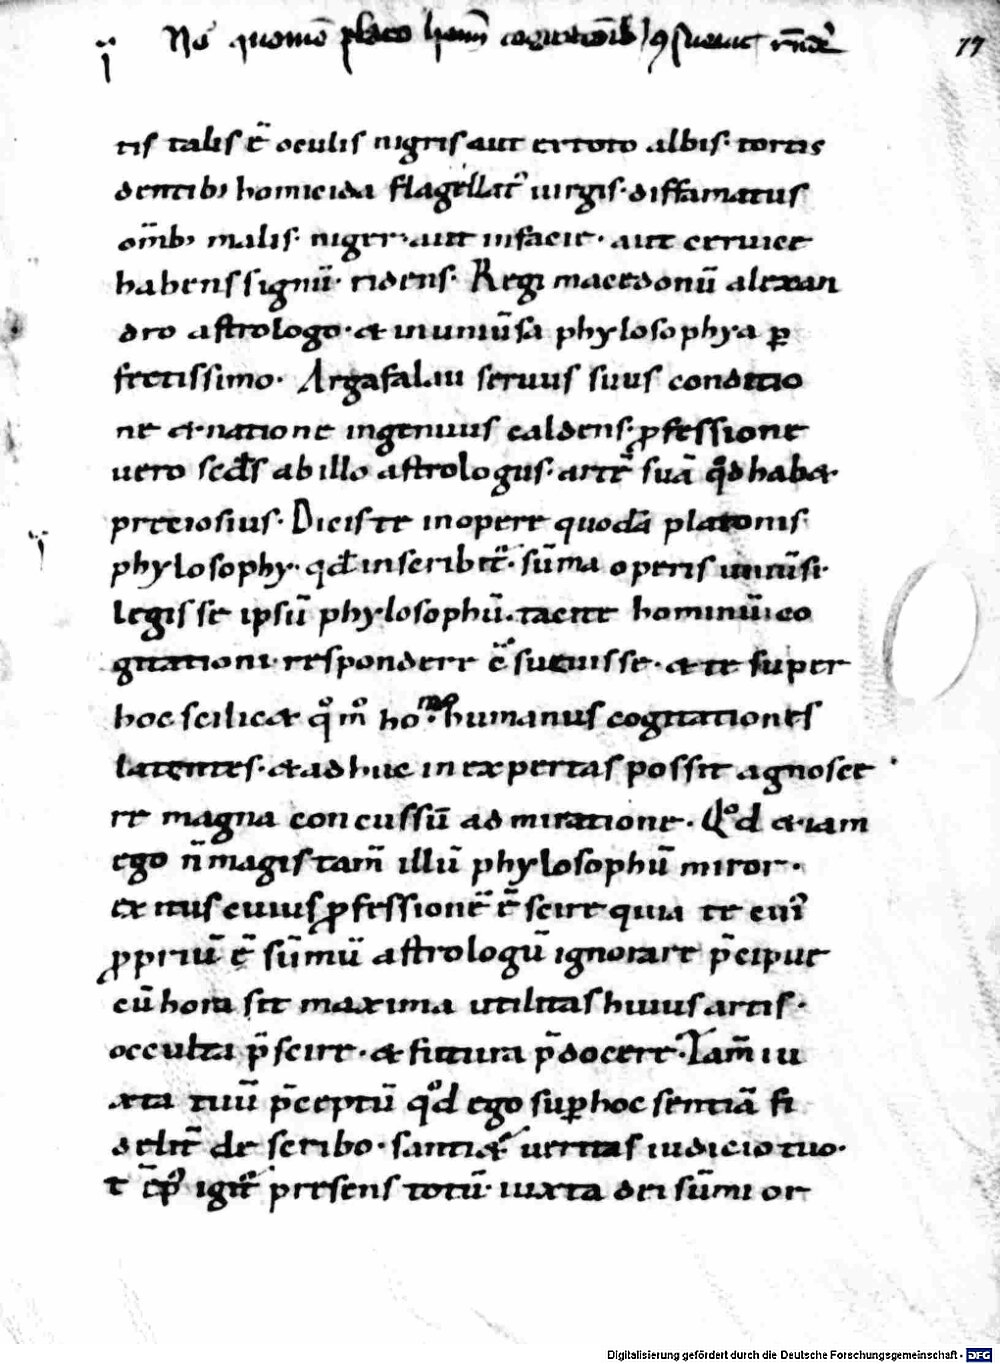 No quomo plato hominū cogitationib) 9sueuit rn̄de
17
tis talis ē oculis nigris aut ex toto albis· tortis
dentib; homicida flagellat᷒ uirgis· diffamatus
om̄ib; malis· niger· aut in facie· aut ceruice
habens signū· ridens· Regi macedonū alexan
dro astrologo· & in uniūsa phylosophya p̱
fectissimo· Argafalau seruus suus conditio
ne & natione ingenuus caldens· ꝓfessione
uero secd̄s ab illo astrologus· artē suā qͦd hab&·
preciosius· Dicis te in opere quodā platonis
phylosophy· qd̄ inscribit᷒· sūma operis uniūsi·
legisse ipsū phylosophū· tacite hominū co
gitationi· respondere ē sueuisse· & te super
hoc scilic& qͦ mͦ hoͦ humanus cogitationes
latentes· & adhuc inexpertas possit agnosce
re magna concussū admiratione· Qͦd & iam
ego n̄ magis tam̄ illū phylosophū miror·
ex itus cuius ꝓfessionē ē scire quia te eni᷒
ꝓpriū ē sūmū astrologū ignorare p̄cipue
cū hora sit maxima utilitas huius artis·
occulta p̄scire· & futura p̄docere· Tam̄ iu
xta tuū p̄ceptū qͦd ego sup̱ hoc sentiā fi
delit᷒ de scribo· santi& ueritas iudicio tuo·
t ēp᷒ igit᷒ presens totū· iuxta dei sūmi or
Digitalisierung gefördert durch die Deutsche Forschungsgemeinschaft · DFG